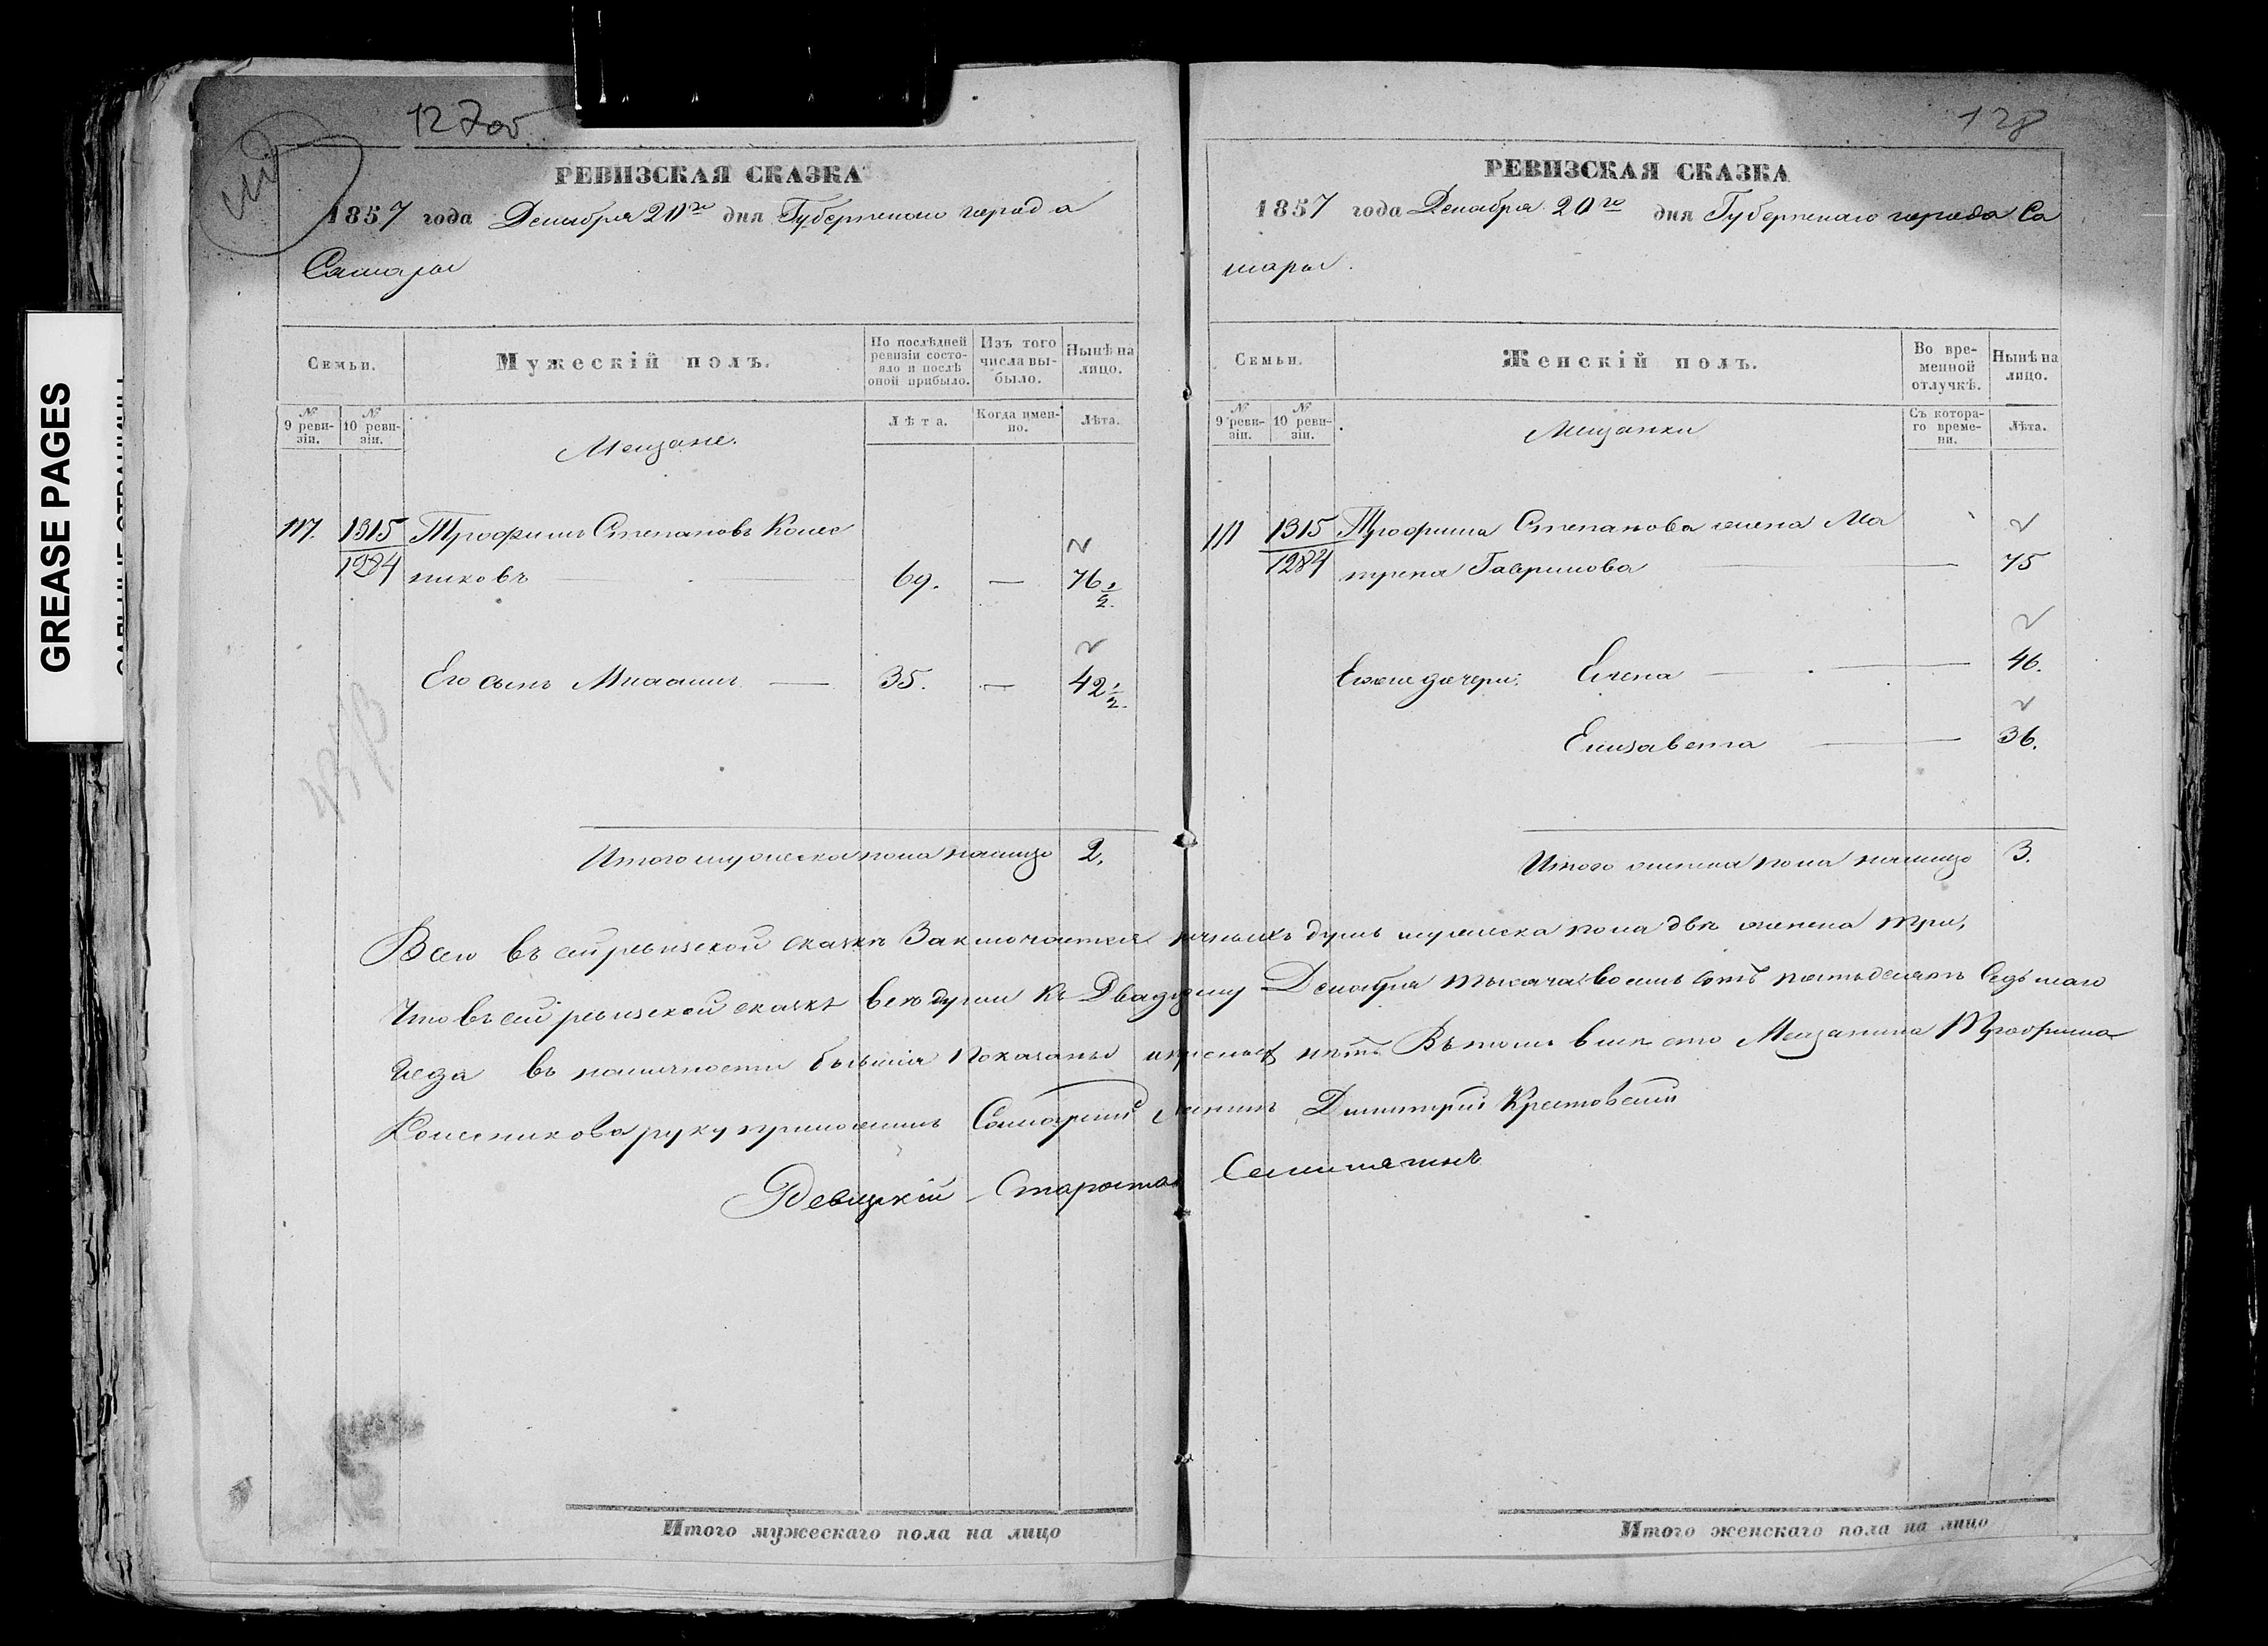 127 об
128
GREASE PAGES
РЕВИЗСКАЯ СКАЗКА
1857 года Декабря 20го дня Губернскаго города
Самары
Семьи.
Мужескій полъ.
По послѣдней ревизіи состояло и послѣ оной прибыло.
Изъ того числа выбыло.
Нынѣ на лицо.
№ 9 ревизіи.
№ 10 ревизіи.
Мещане.
Лѣта.
Когда именно.
Лѣта.
1315 Трофимъ Степановъ Колес
1284 никовъ — 69. — 76 1/2.
Его сынъ — 35. — 42 1/2.
Итого мужеска пола налицо 2.
РЕВИЗСКАЯ СКАЗКА
1857 года Декабря 20го дня Губернскаго города Са
мары.
Семьи.
Женскій полъ.
Во временной отлучкѣ.
Нынѣ на лицо.
№ 9 ревизіи.
№ 10 ревизіи.
Мещанки
Съ котораго времени.
Лѣта.
1315 Трофима Степанова жена Ма
1284 трена Гаврилова — 75
дочери: Елена — 46.
Елизавета — 36.
Итого женска пола налицо 3.
Всего въ сей ревизской сказкѣ заключается душъ мужеска пола двѣ женска три,
Что въ сей ревизской сказкѣ всѣ души къ Двадцатому Декабря тысяча восемь сотъ пятьдесятъ седьмаго
года въ наличности бывшія показаны и нѣтъ Въ томъ вместо Мещанина Трофима
Колесникова руку приложилъ Самарскій Димитрій Крестовскій
Староста
Итого мужескаго пола на лицо
Итого женскаго пола на лицо